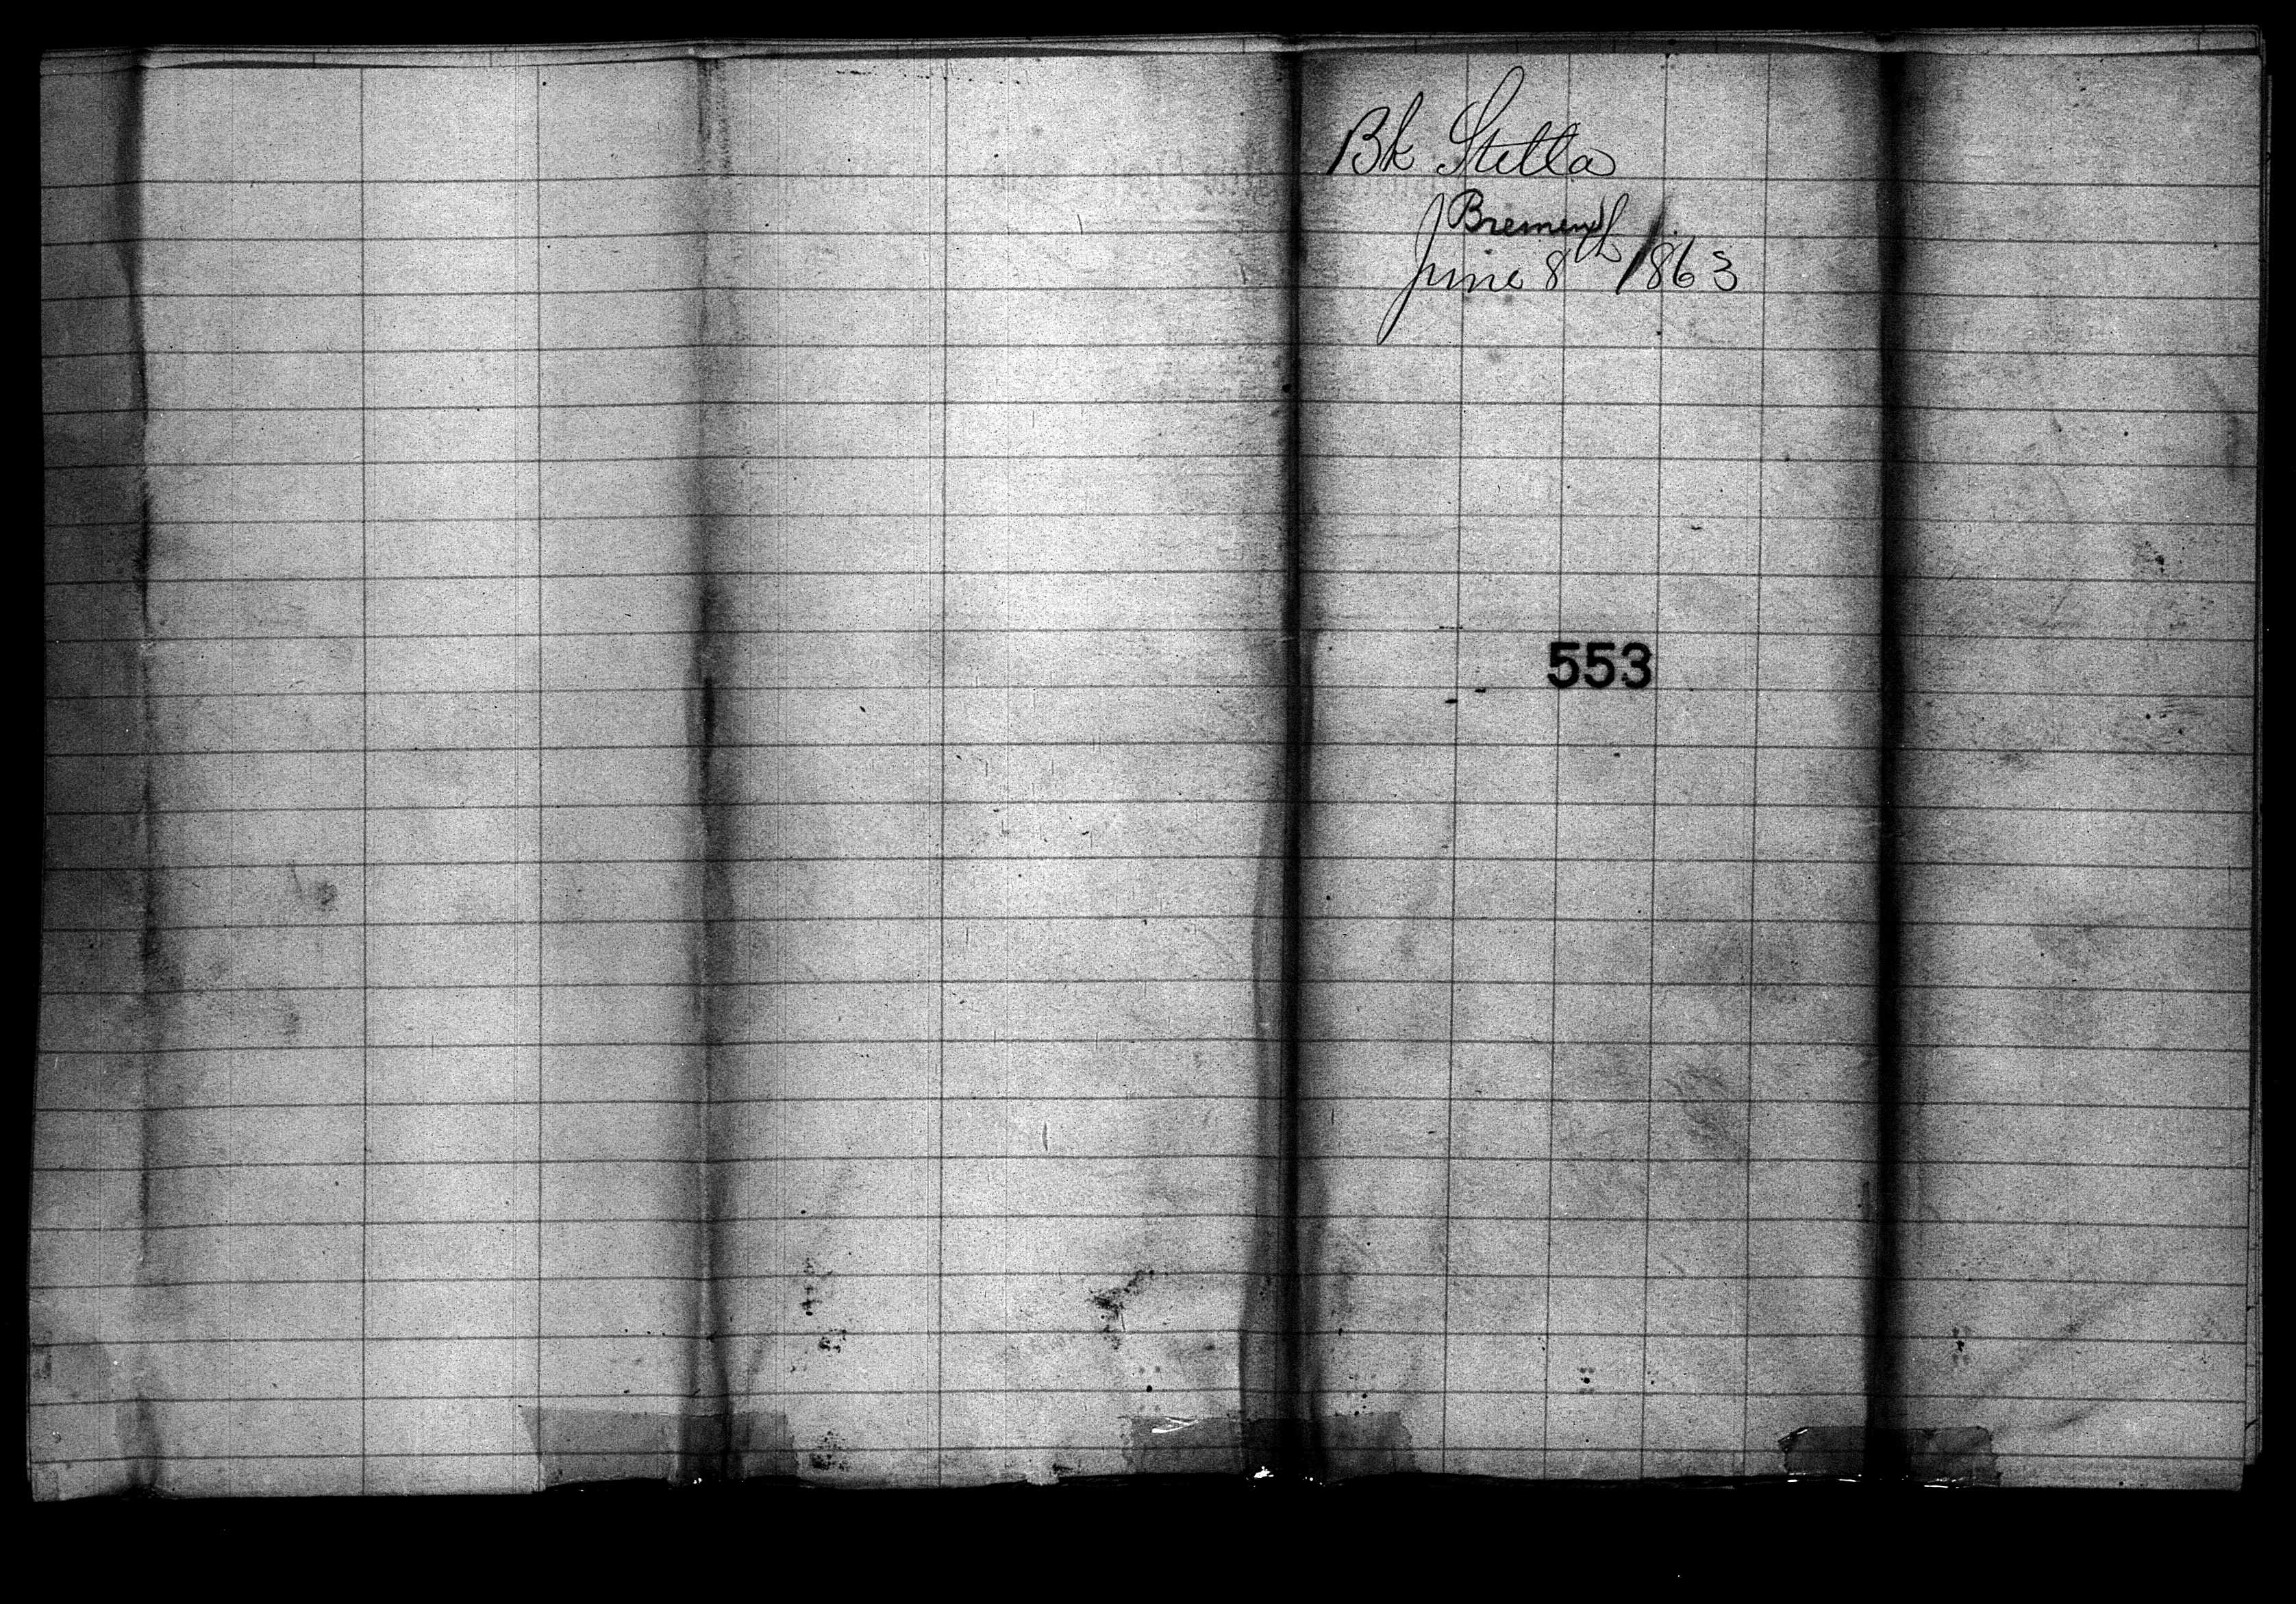 Bk Stella
Bremen
June 8th 1863
553